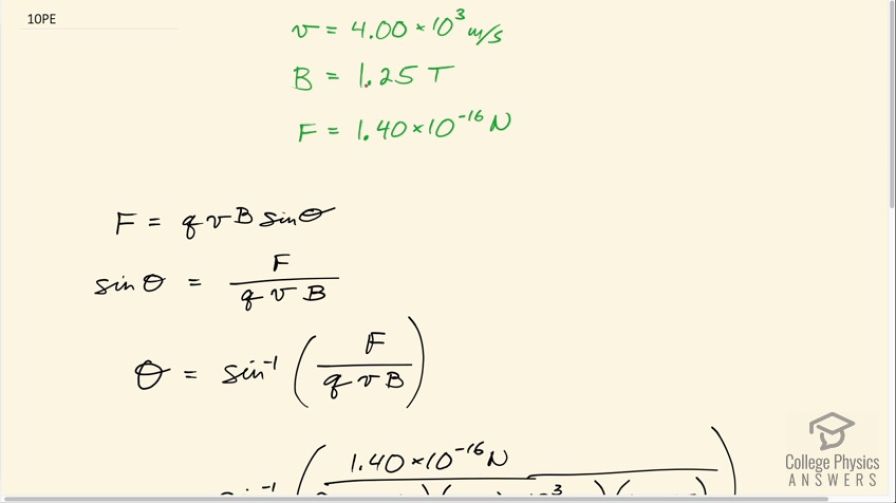 10PE
v = 4.00 × 10³ m/s
B = 1.25 T
F = 1.40 × 10⁻¹⁶ N
F = q v B sin θ
sin θ = F / (q v B)
θ = sin⁻¹ (F / (q v B))
1.40 × 10⁻¹⁶ N
College Physics
ANSWERS